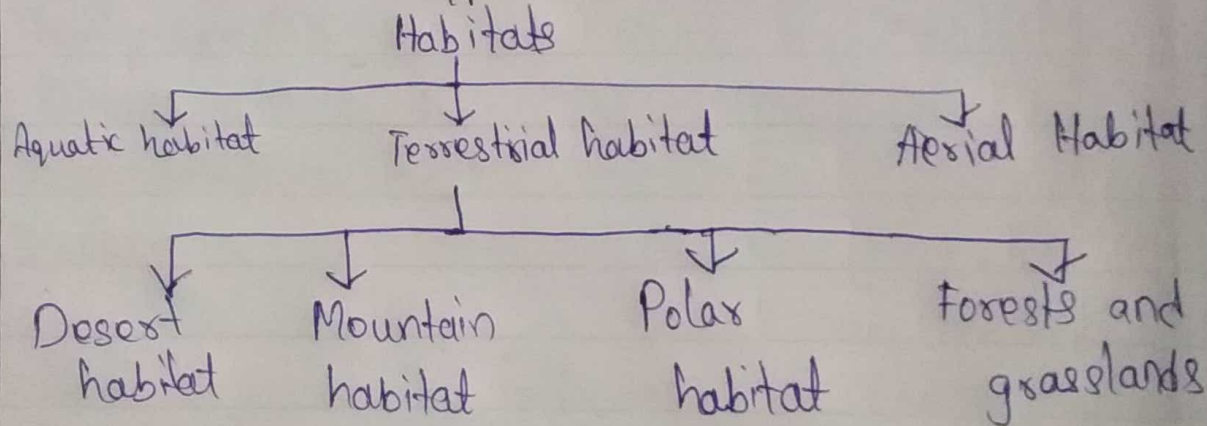 Habitats
Aquatic habitat Terrestrial habitat Aerial Habitat
Desert habitat
Mountain habitat
Polar habitat
Forests and grasslands